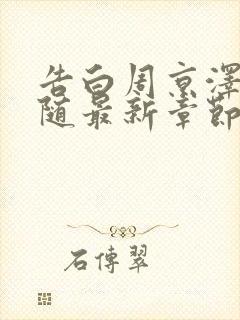 告白周京澤
随最新章節
石傳翠